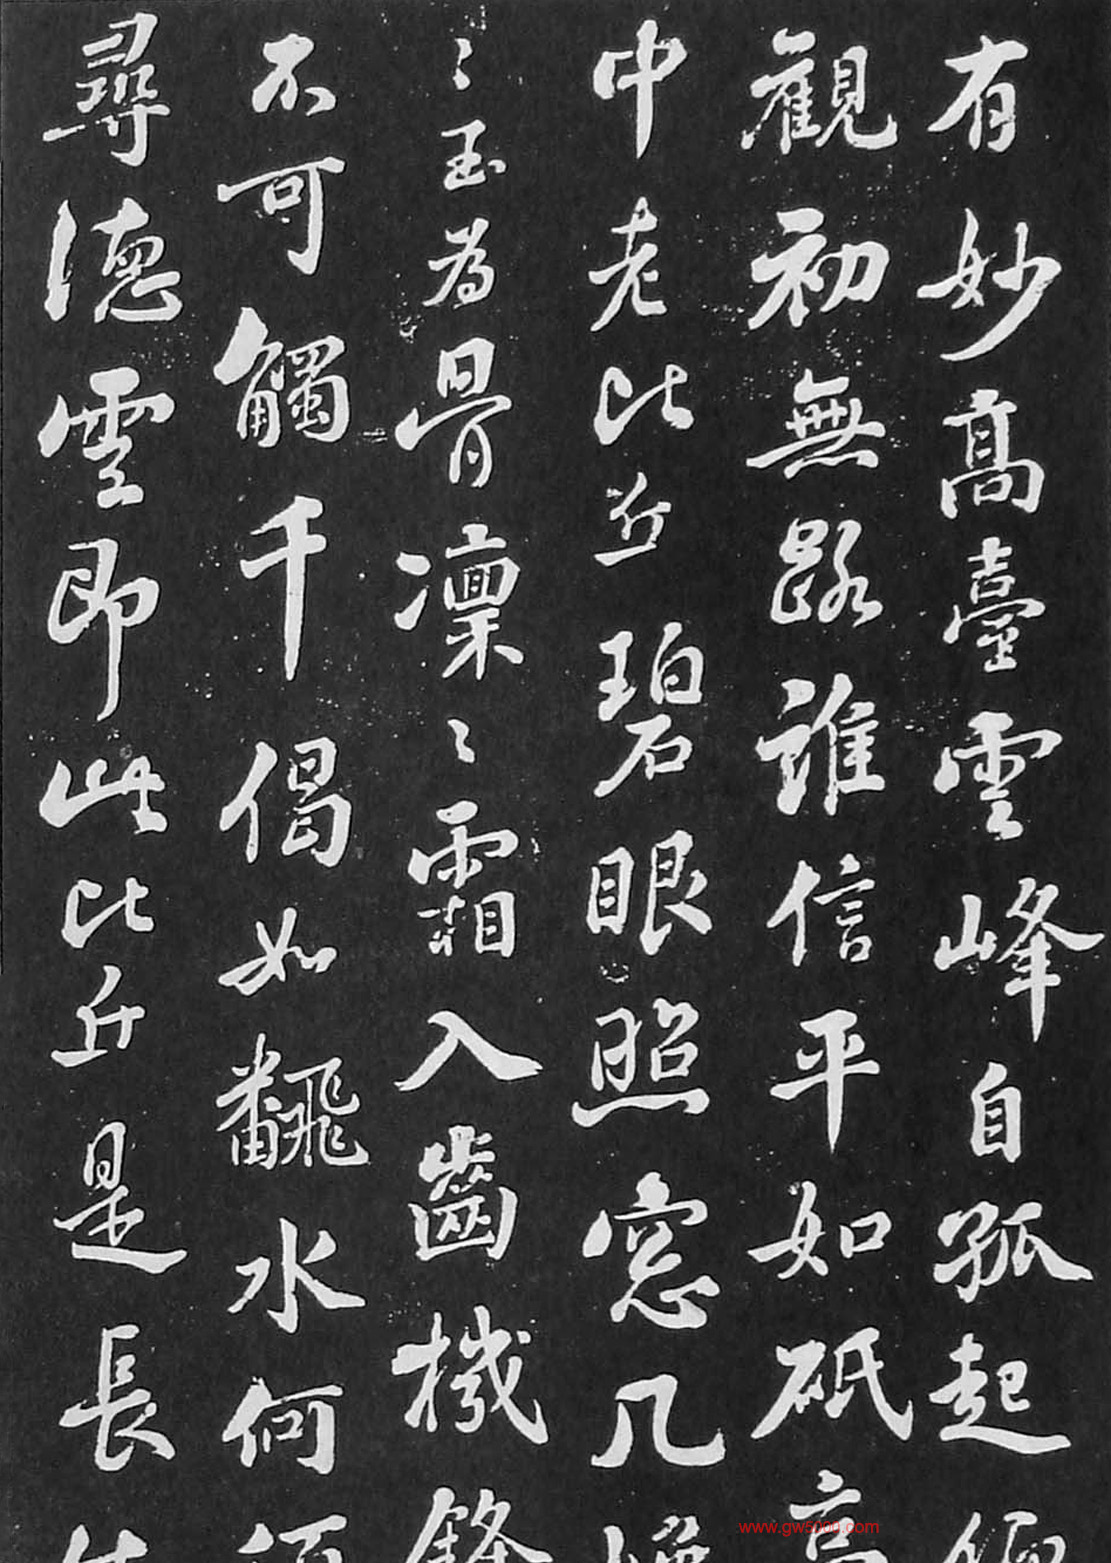 有妙高臺雲峰自孤起仰
觀初無路誰信平如砥高
中老比丘碧眼照窓几
〻玉為骨凜〻霜入齒機鋒
不可觸千偈如翻水何須
尋德雲即此比丘是長
www.gw5000.com